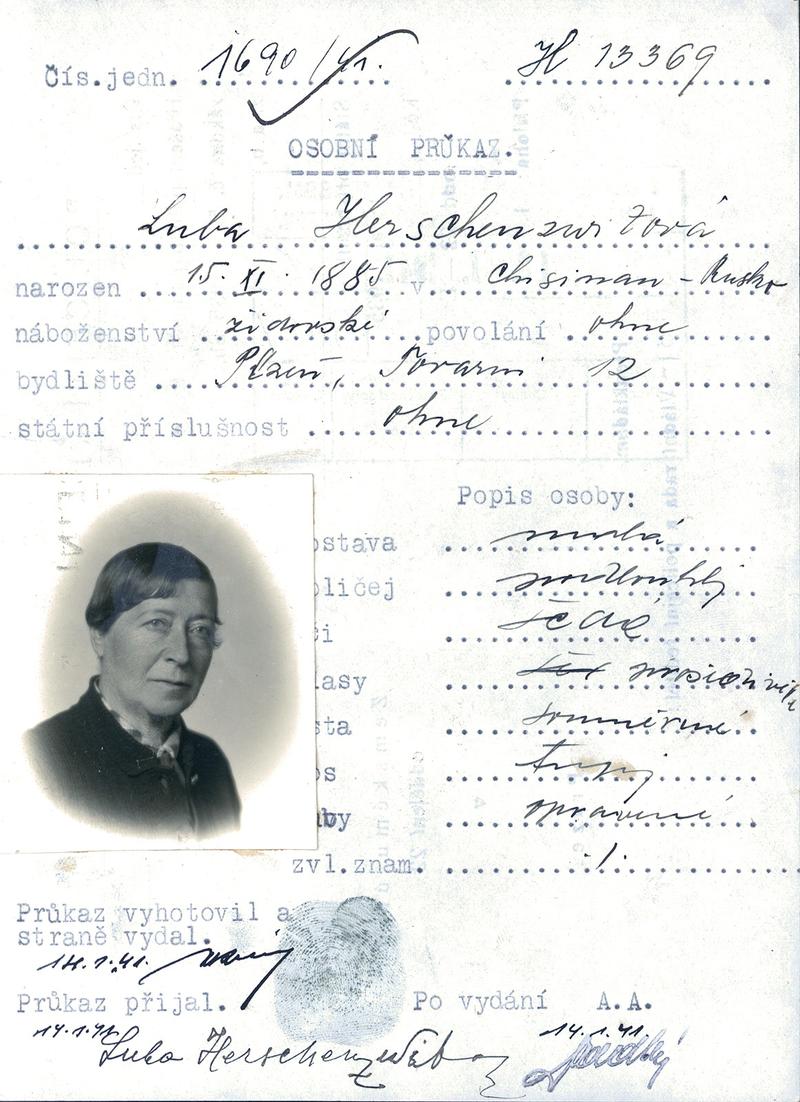 Čís.jedn. 1690/41. H 13369
OSOBNÍ PRŮKAZ.
Luba Herschenzwitová
narozen 15. XI. 1885 v Chisinau - Rusko
náboženství židovské povolání ohne
bydliště Plzeň, Tovarni 12
státní příslušnost ohne
Popis osoby:
ostava
ličej podlouhlý
či šedé
lasy prosedivělé
sta souměrné
os tupý
by opravené
zvl.znam. /.
Průkaz vyhotovil a
straně vydal.
14.1.41.
Průkaz přijal. Po vydání A.A.
14.1.41. 14.1.41.
Luba Herschenzwitova